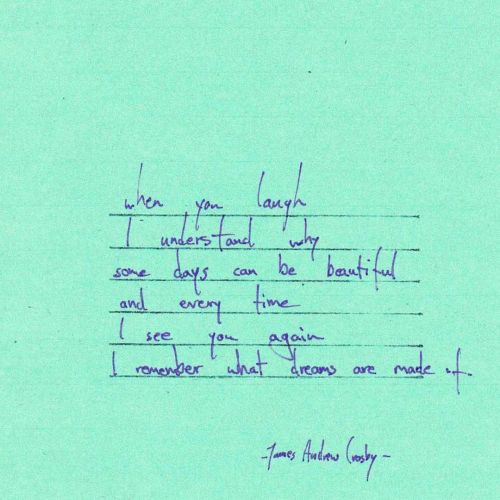 when you laugh
I understand why
some days can be beautiful
and every time
I see you again
I remember what dreams are made of.
-James Andrew Crosby-